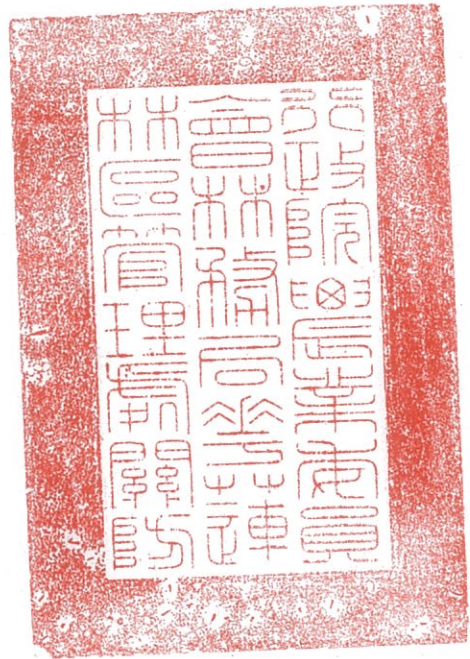 行政院農業委員
會林務局花蓮
林區管理處關防